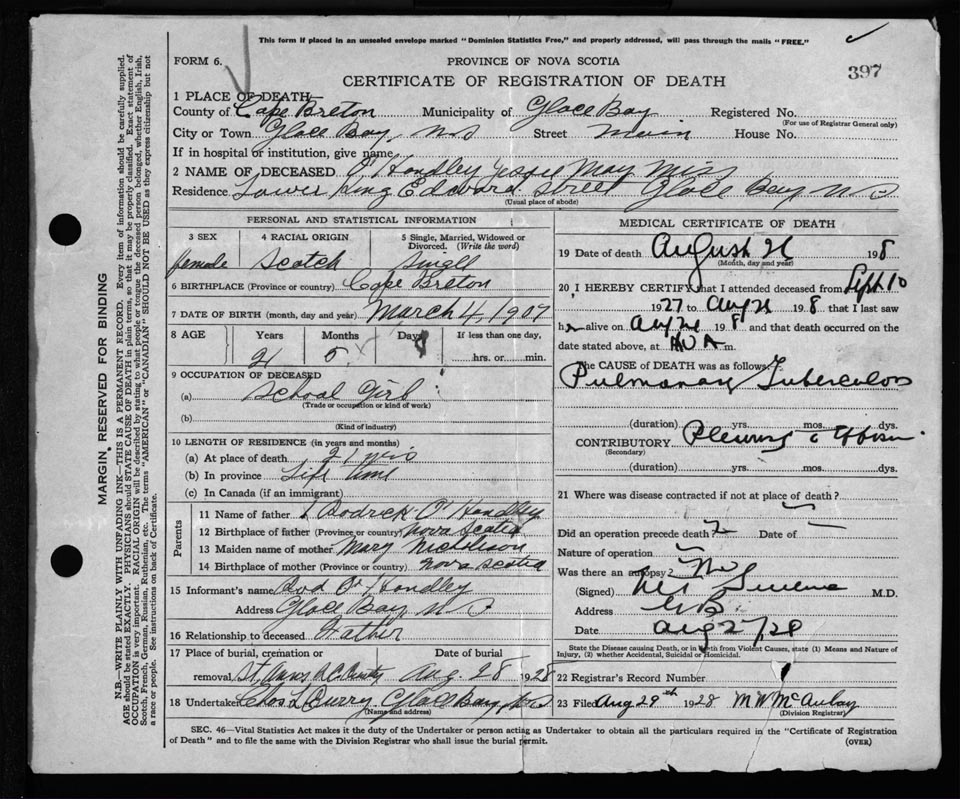 This form if placed in an unsealed envelope marked "Dominion Statistics Free," and properly addressed, will pass through the mails "FREE."
FORM 6.
PROVINCE OF NOVA SCOTIA
CERTIFICATE OF REGISTRATION OF DEATH
397
1 PLACE OF DEATH
County of Cape Breton Municipality of Glace Bay Registered No.
(For use of Registrar General only)
City or Town Glace Bay, N S Street Main House No.
If in hospital or institution, give name
2 NAME OF DECEASED O'Handley Jessie May Miss
Residence Lower King Edward Street Glace Bay N S
(Usual place of abode)
PERSONAL AND STATISTICAL INFORMATION
3 SEX 4 RACIAL ORIGIN 5 Single, Married, Widowed or Divorced. (Write the word)
female Scotch Singll
6 BIRTHPLACE (Province or country) Cape Breton
7 DATE OF BIRTH (month, day and year) March 4, 1907
8 AGE Years Months Days If less than one day,
21 5 hrs. or min.
9 OCCUPATION OF DECEASED
(a) School Girl
(Trade or occupation or kind of work)
(b)
(Kind of industry)
10 LENGTH OF RESIDENCE (in years and months)
(a) At place of death 21 yrs
(b) In province Life time
(c) In Canada (if an immigrant)
Parents
11 Name of father Rodrck O'Handley
12 Birthplace of father (Province or country) Nova Scotia
13 Maiden name of mother Mary Nicholson
14 Birthplace of mother (Province or country) Nova Scotia
15 Informant's name Rod O'Handley
Address Glace Bay, N S
16 Relationship to deceased Father
17 Place of burial, cremation or removal Date of burial
St. Anns R C Aug. 28 1928
18 Undertaker Chas L Curry Glace Bay, N S
(Name and address)
MEDICAL CERTIFICATE OF DEATH
19 Date of death August 26 1928
(Month, day and year)
20 I HEREBY CERTIFY that I attended deceased from Sept 10
1927 to Aug 26 1928 that I last saw
her alive on Aug 26 1928 and that death occurred on the
date stated above, at m.
The CAUSE OF DEATH was as follows:
Pulmonary Tuberculosis
(duration) yrs. mos. dys.
CONTRIBUTORY Pleurisy
(Secondary)
(duration) yrs. mos. dys.
21 Where was disease contracted if not at place of death?
Did an operation precede death? Date of
Nature of operation
Was there an autopsy? No
(Signed) M.D.
Address G.B.
Date Aug 27/28
State the Disease causing Death, or in Death from Violent Causes, state (1) Means and Nature of Injury, (2) whether Accidental, Suicidal or Homicidal.
22 Registrar's Record Number
23 Filed Aug 29th 1928 M W McAulay
(Division Registrar)
SEC. 46—Vital Statistics Act makes it the duty of the Undertaker or person acting as Undertaker to obtain all the particulars required in the "Certificate of Registration
of Death" and to file the same with the Division Registrar who shall issue the burial permit.
(OVER)
MARGIN RESERVED FOR BINDING
N.B.—WRITE PLAINLY WITH UNFADING INK—THIS IS A PERMANENT RECORD. Every item of information should be carefully supplied.
AGE should be stated EXACTLY. PHYSICIANS should STATE CAUSE OF DEATH in plain terms, so that it may be properly classified. Exact statement of
OCCUPATION is very important. RACIAL ORIGIN will be described by stating to what people or tongue the deceased person belonged, whether English, Irish,
Scotch, French, German, Russian, Ruthenian, etc. The terms "AMERICAN" or "CANADIAN" SHOULD NOT BE USED as they express citizenship but not
a race or people. See instructions on back of Certificate.